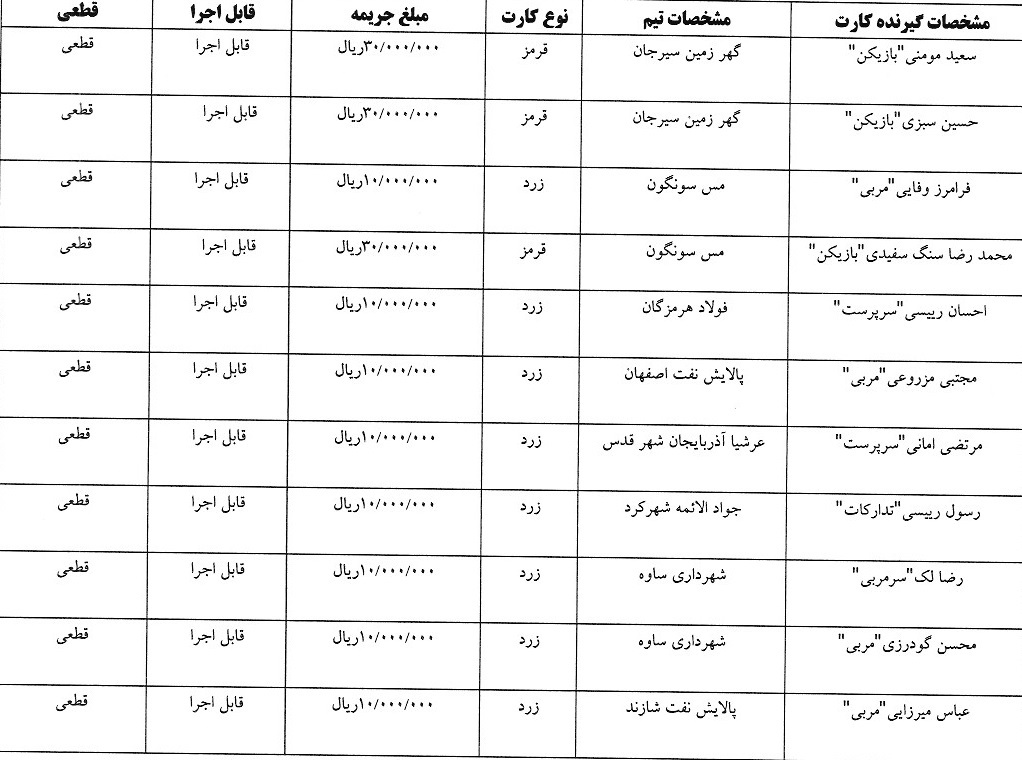 مشخصات گیرنده کارت مشخصات تیم نوع کارت مبلغ جریمه قابل اجرا قطعی
سعید مومنی"بازیکن" گهر زمین سیرجان قرمز ۳۰/۰۰۰/۰۰۰ریال قابل اجرا قطعی
حسین سبزی"بازیکن" گهر زمین سیرجان قرمز ۳۰/۰۰۰/۰۰۰ریال قابل اجرا قطعی
فرامرز وفایی"مربی" مس سونگون زرد ۱۰/۰۰۰/۰۰۰ریال قابل اجرا قطعی
محمد رضا سنگ سفیدی"بازیکن" مس سونگون قرمز ۳۰/۰۰۰/۰۰۰ریال قابل اجرا قطعی
احسان رییسی"سرپرست" فولاد هرمزگان زرد ۱۰/۰۰۰/۰۰۰ریال قابل اجرا قطعی
مجتبی مزروعی"مربی" پالایش نفت اصفهان زرد ۱۰/۰۰۰/۰۰۰ریال قابل اجرا قطعی
مرتضی امانی"سرپرست" عرشیا آذربایجان شهر قدس زرد ۱۰/۰۰۰/۰۰۰ریال قابل اجرا قطعی
رسول رییسی"تدارکات" جواد الائمه شهرکرد زرد ۱۰/۰۰۰/۰۰۰ریال قابل اجرا قطعی
رضا لک"سرمربی" شهرداری ساوه زرد ۱۰/۰۰۰/۰۰۰ریال قابل اجرا قطعی
محسن گودرزی"مربی" شهرداری ساوه زرد ۱۰/۰۰۰/۰۰۰ریال قابل اجرا قطعی
عباس میرزایی"مربی" پالایش نفت شازند زرد ۱۰/۰۰۰/۰۰۰ریال قابل اجرا قطعی